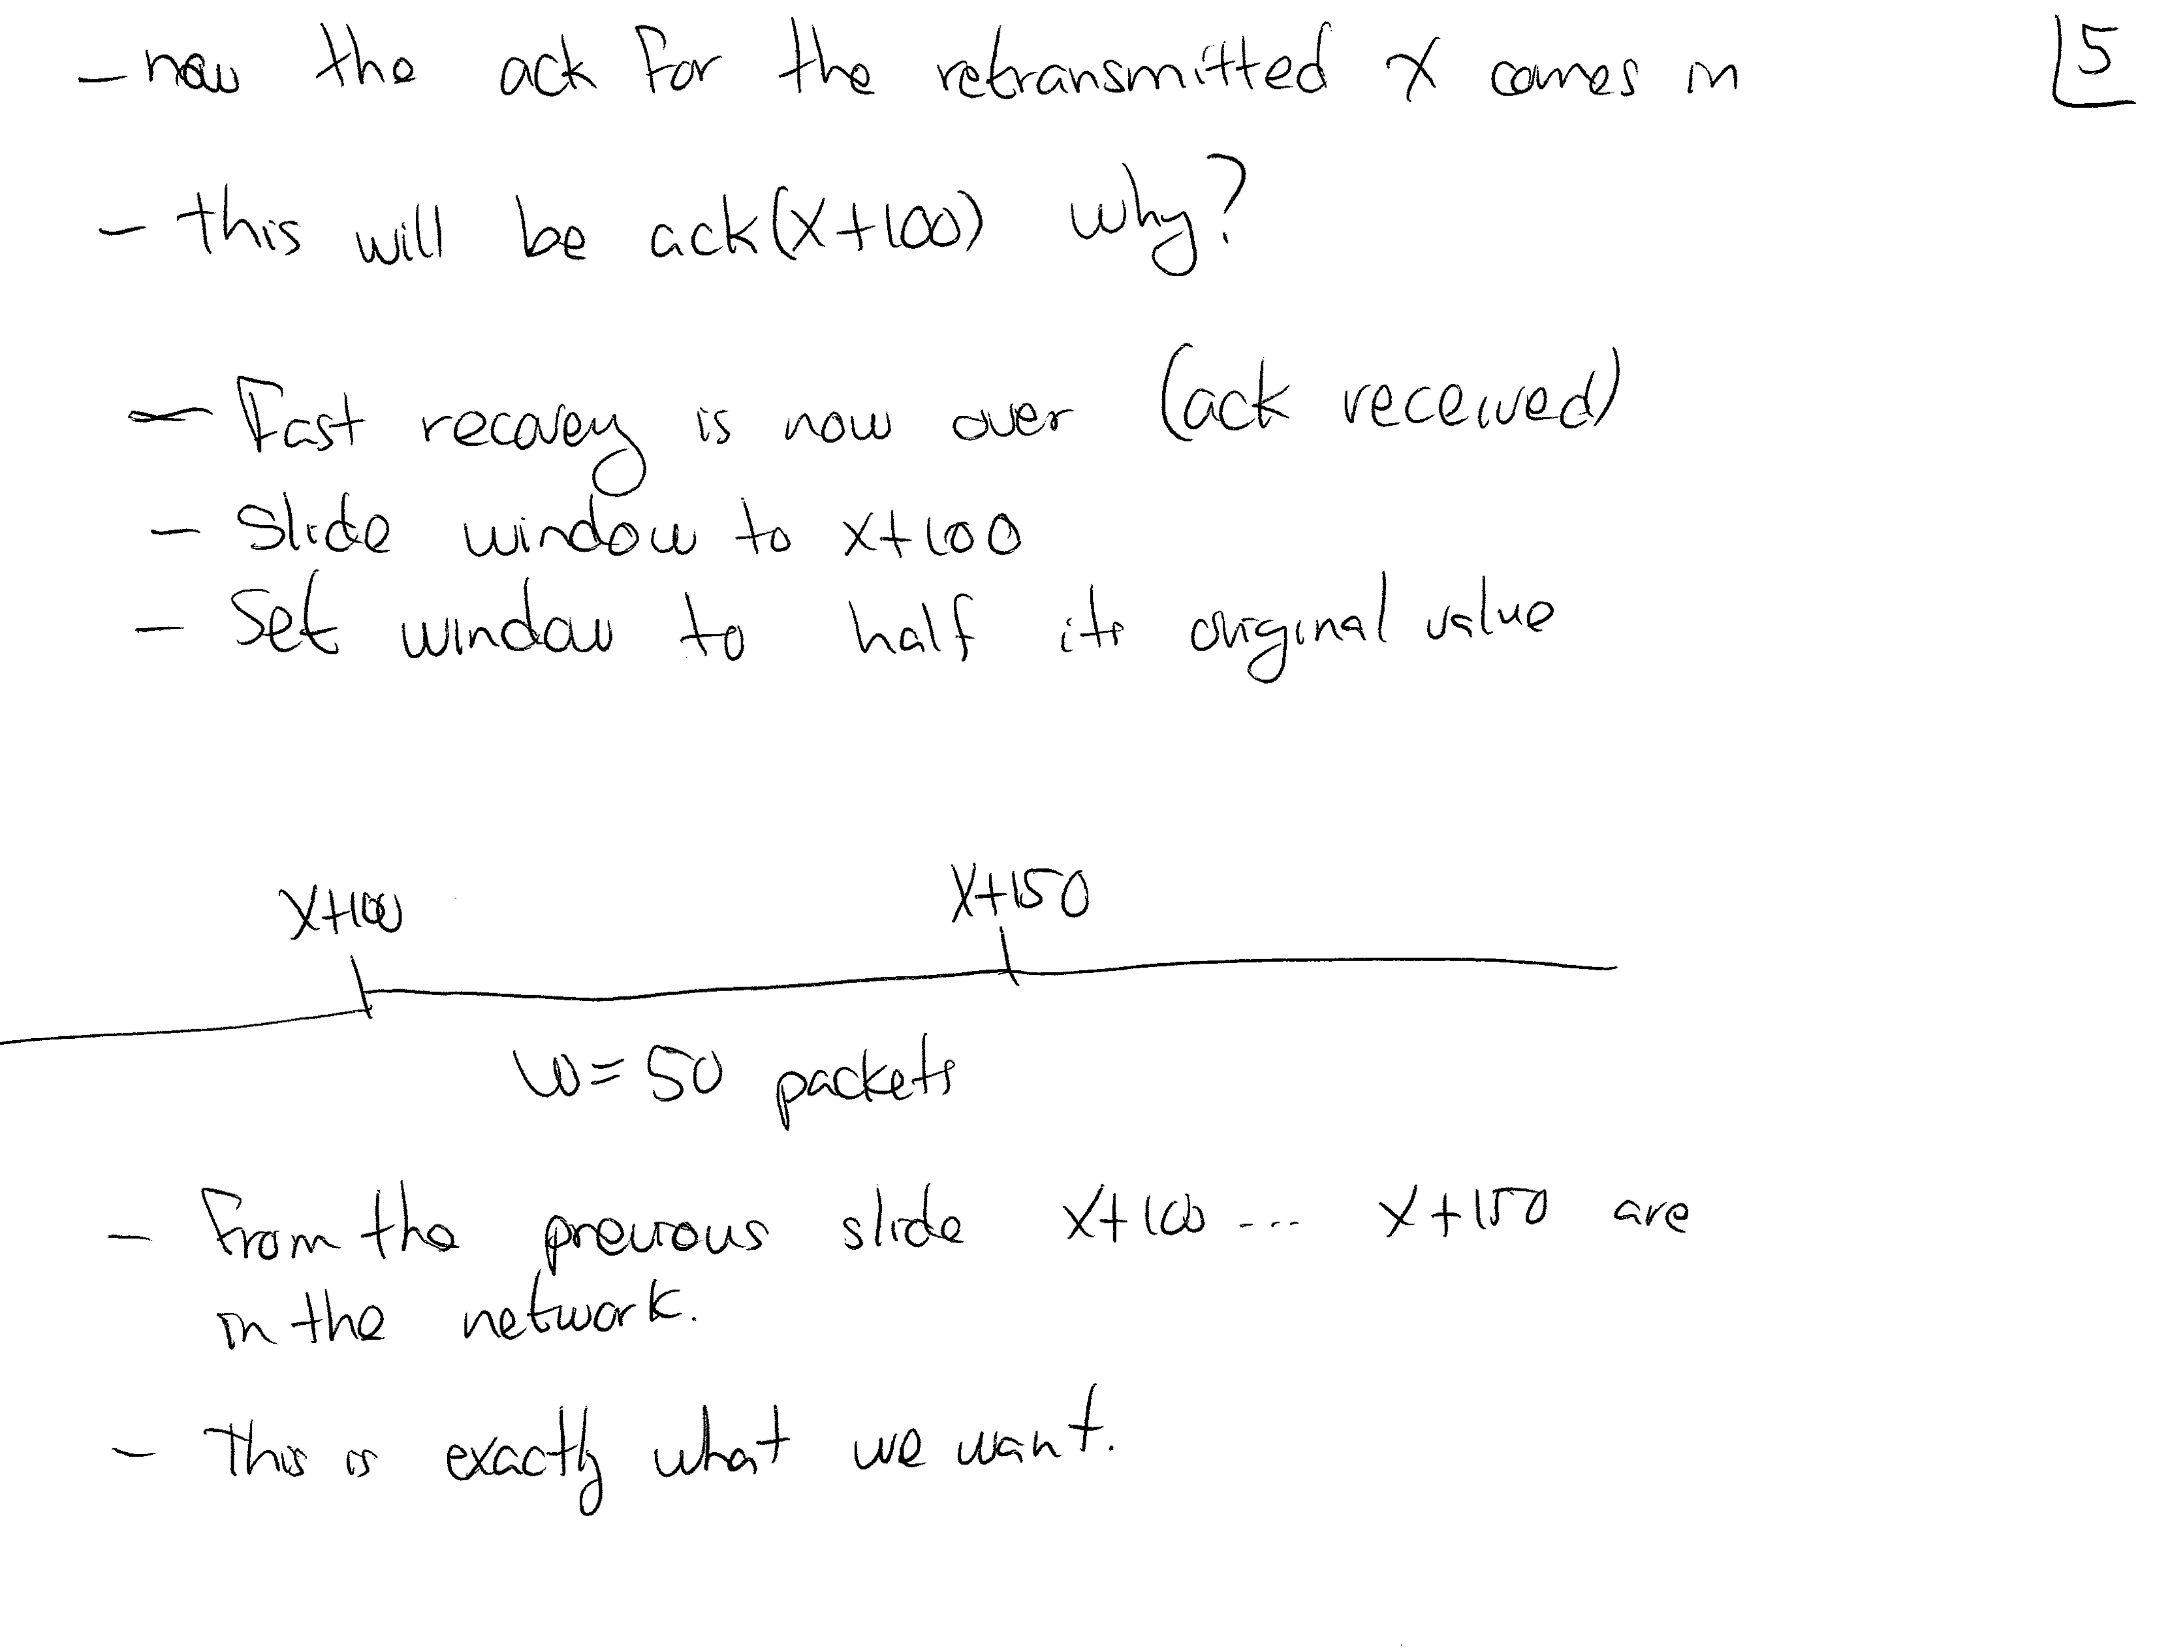 - now the ack for the retransmitted X comes in
5
- this will be ack(X+100) why?
- Fast recovery is now over (ack received)
- Slide window to x+100
- Set window to half its original value
X+100
X+150
W=50 packets
- From the previous slide X+100 ... X+150 are
in the network.
- This is exactly what we want.